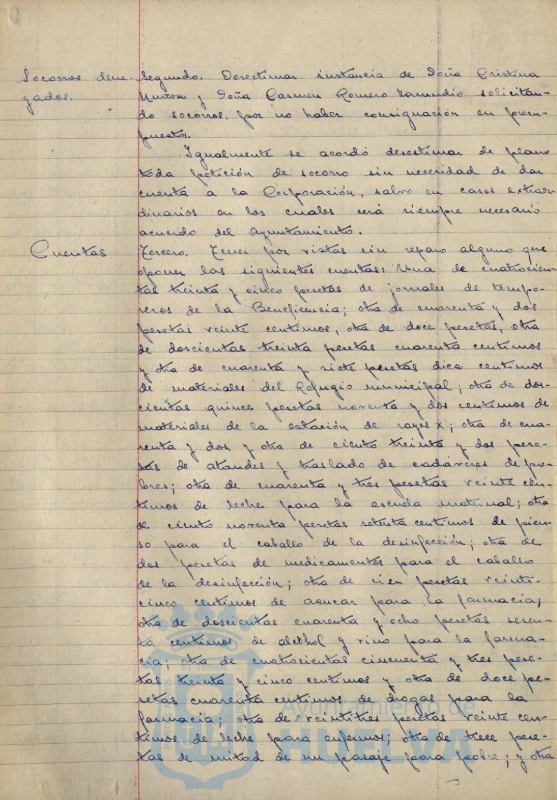 Socorros dene-
gados.
Segundo. Desestimar instancia de Doña Cristina
Muñoz y Doña Carmen Romero Zamudio solicitan-
do socorros, por no haber consignación en presu-
puestos.
Igualmente se acordó desestimar de plano
toda petición de socorro sin necesidad de dar
cuenta a la Corporación, salvo en casos extraor-
dinarios en los cuales será siempre necesario
acuerdo del Ayuntamiento.
Cuentas
Tercero. Tener por vistas sin reparo alguno que
oponer las siguientes cuentas: Una de cuatrocien-
tas treinta y cinco pesetas de jornales de tempo-
reros de la Beneficencia; otra de cuarenta y dos
pesetas veinte centimos, otra de doce pesetas, otra
de doscientas treinta pesetas cuarenta centimos
y otra de cuarenta y siete pesetas diez centimos
de materiales del Refugio municipal; otra de dos-
cientas quince pesetas noventa y dos centimos de
materiales de la estación de rayos X; otra de cua-
renta y dos y otra de ciento treinta y dos pese-
tas de ataudes y traslado de cadáveres de po-
bres; otra de cuarenta y tres pesetas veinte cen-
timos de leche para la escuela maternal; otra
de ciento noventa pesetas setenta centimos de pien-
so para el caballo de la desinfección; otra de
dos pesetas de medicamentos para el caballo
de la desinfección; otra de cien pesetas veinti-
cinco centimos de azucar para la farmacia;
otra de doscientas cuarenta y ocho pesetas sesen-
ta centimos de alcohol y vino para la farma-
cia; otra de cuatrocientas cincuenta y tres pese-
tas treinta y cinco centimos y otra de doce pe-
setas cuarenta centimos de drogas para la
farmacia; otra de veintitres pesetas veinte cen-
timos de leche para enfermos; otra de trece pese-
tas de mitad de un pasaje para pobre; y otra
Ayuntamiento de
HUELVA